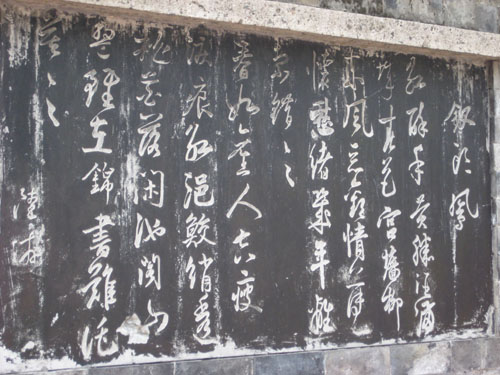 釵頭鳳
紅酥手黃縢酒滿
城春色宮墻柳
東風惡歡情薄一
懷愁緒幾年離
索錯〻〻
春如舊人空瘦
淚痕紅浥鮫綃透
桃花落閑池閣山
盟雖在錦書難托
莫〻〻
陸游